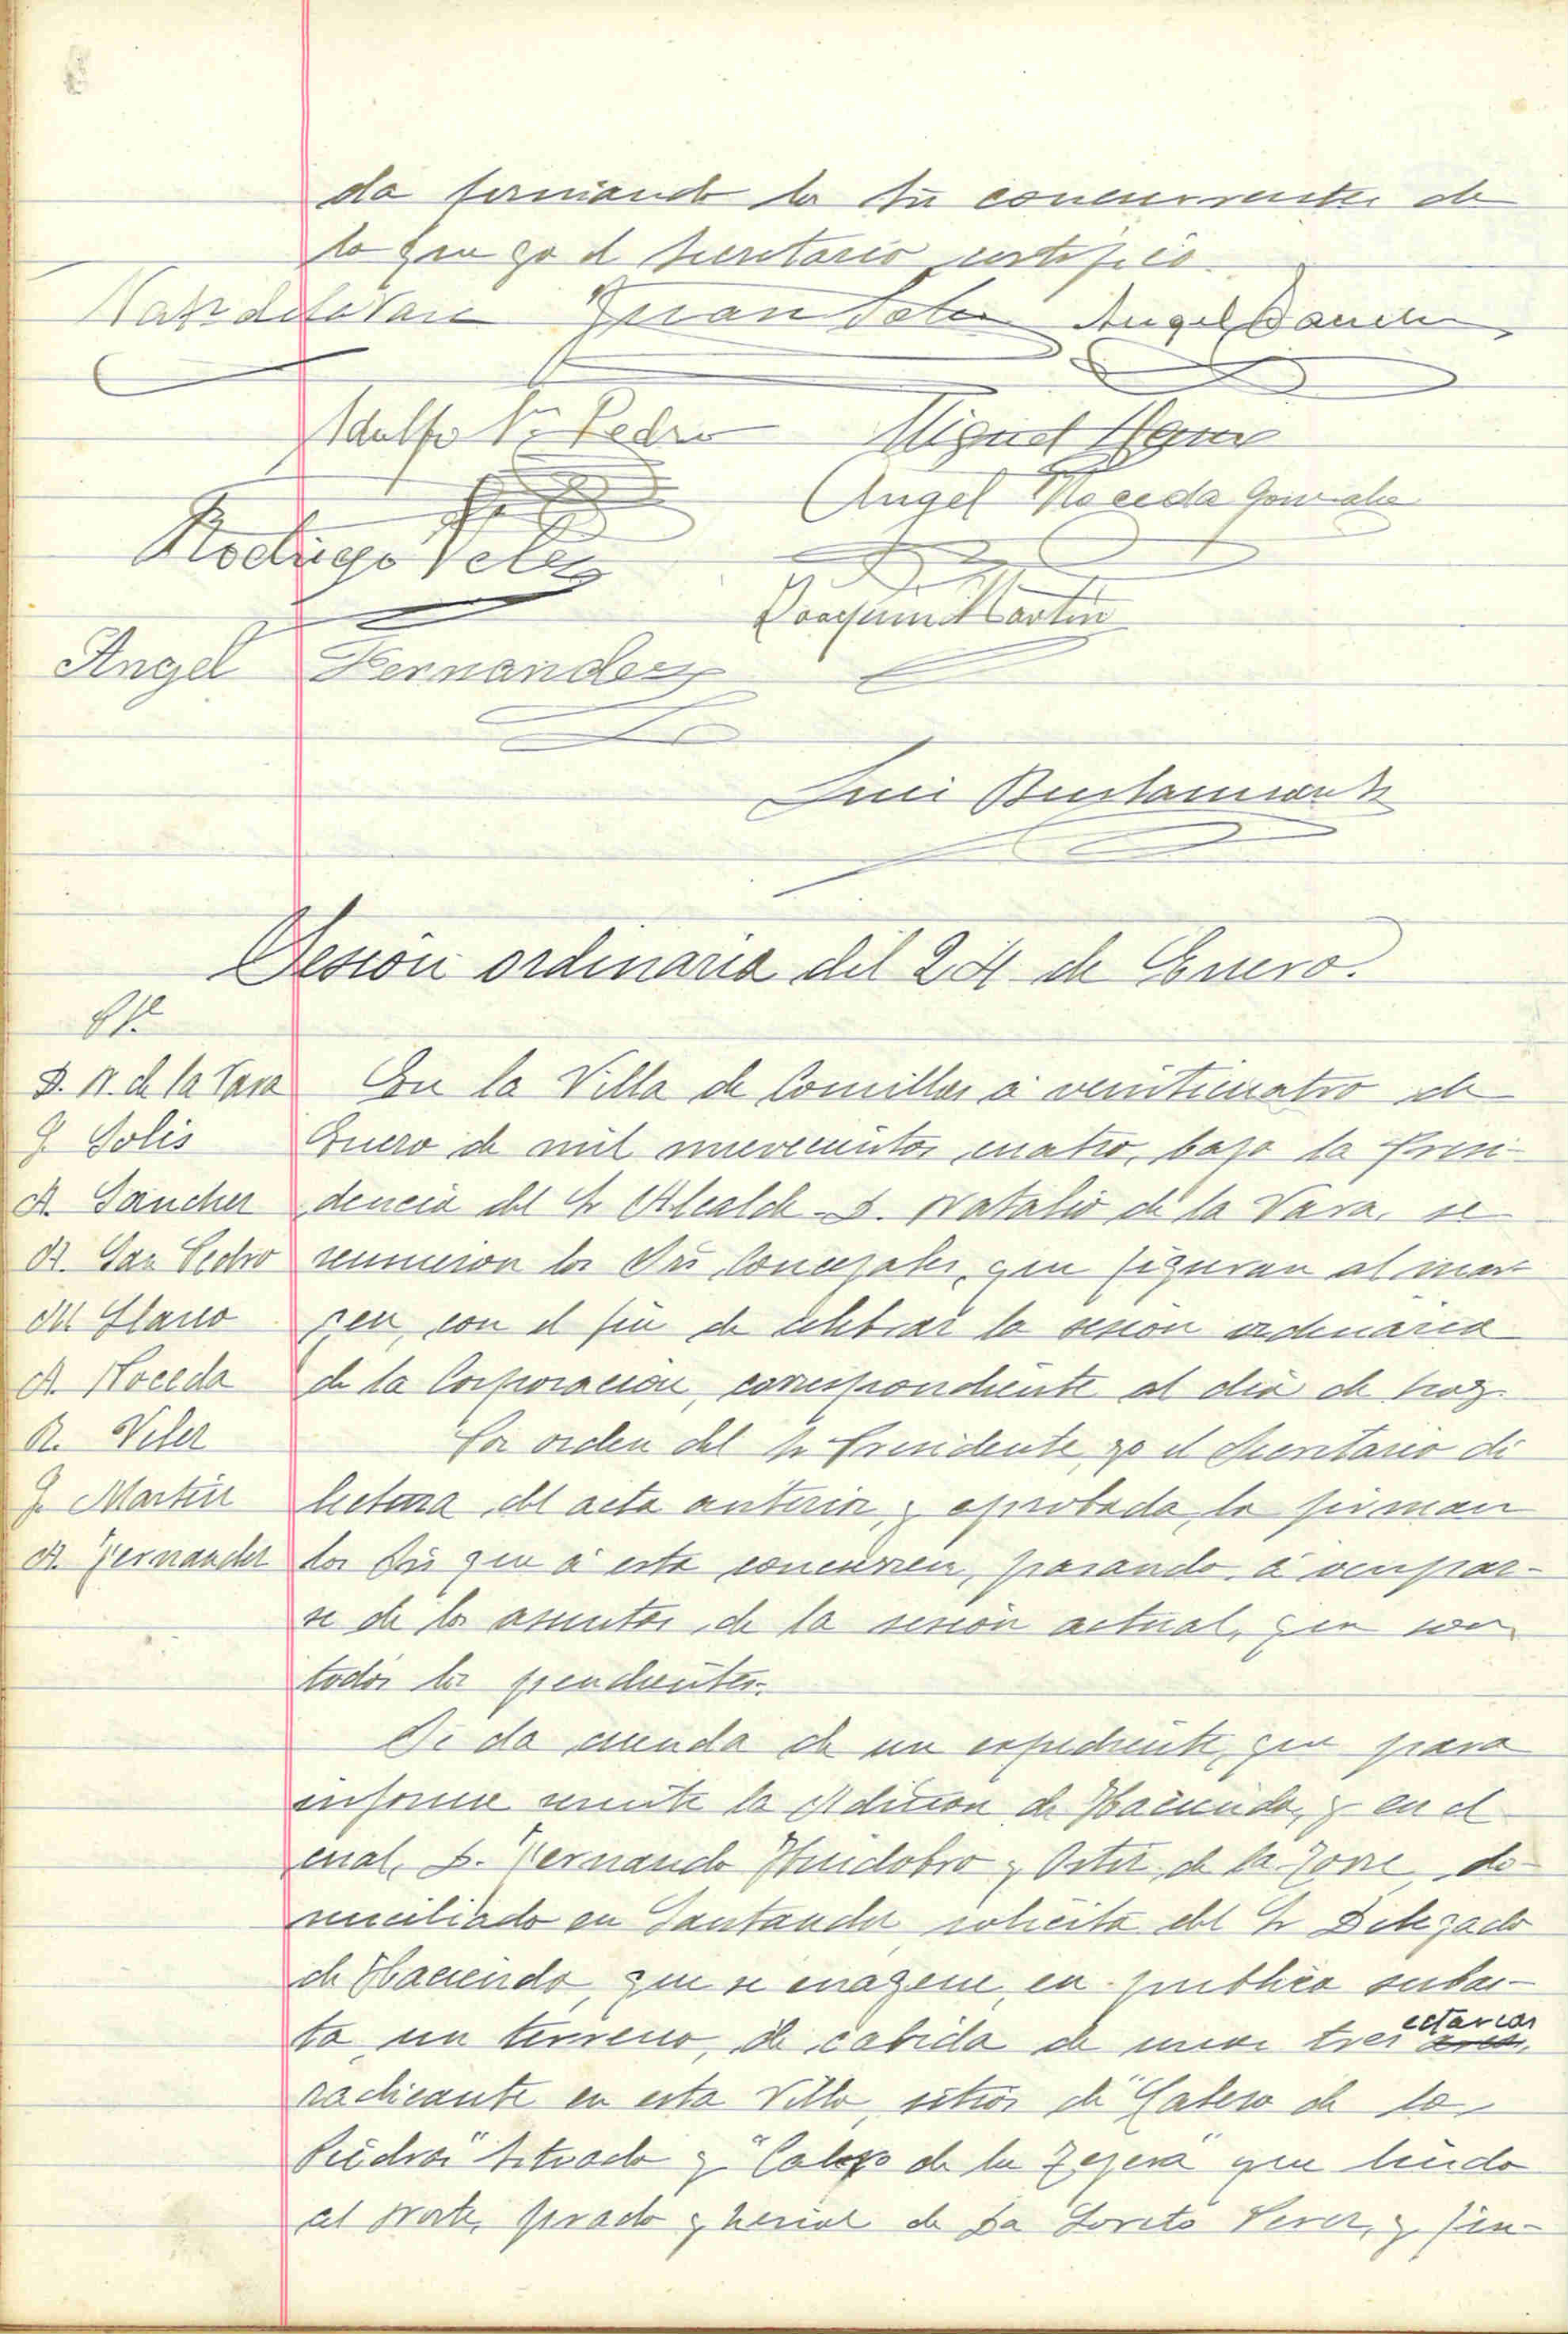 da firmando los Srs concurrentes de
lo que yo el Secretario certifico.
Nat. de la Vara Juan Solis Angel Sanchez
Adolfo Sn. Pedro Miguel Llano
Angel Noceda Gonzalez
Rodrigo Velez
Joaquin Martin
Angel Fernandez
Luis Bustamante
Sesión ordinaria del 24 de Enero.
D. N. de la Vara
J. Solis
A. Sanchez
A. San Pedro
M Llano
A. Noceda
R. Velez
J. Martin
A. Fernandez
En la Villa de Comillas á veinticuatro de
Enero de mil novecientos cuatro, bajo la Presi-
dencia del Sr Alcalde D. Natalio de la Vara, se
reunieron los Srs Concejales, que figuran al mar-
gen, con el fin de celebrar la sesion ordinaria
de la Corporación, correspondiente al dia de hoy.
Por orden del Sr Presidente, yo el Secretario di
lectura del acta anterior, y aprobada, la firman
los Srs que á esta concurren, pasando á ocupar-
se de los asuntos de la sesión actual, que son
todos los pendientes.
Se da cuenta de un expediente, que para
informe remite la Admon de Hacienda, y en el
cual, D. Fernando Huidobro y Ortiz de la Torre, do-
miciliado en Santander solicita del Sr Delegado
de Hacienda, que se enagene, en publica subas-
ta un terreno, de cabida de unas tres ectareas
radicante en esta Villa, sitios de "Calero de la
Piedra" de la que linda
al Norte, prado y herial de Da Loreto Perez, y fin-